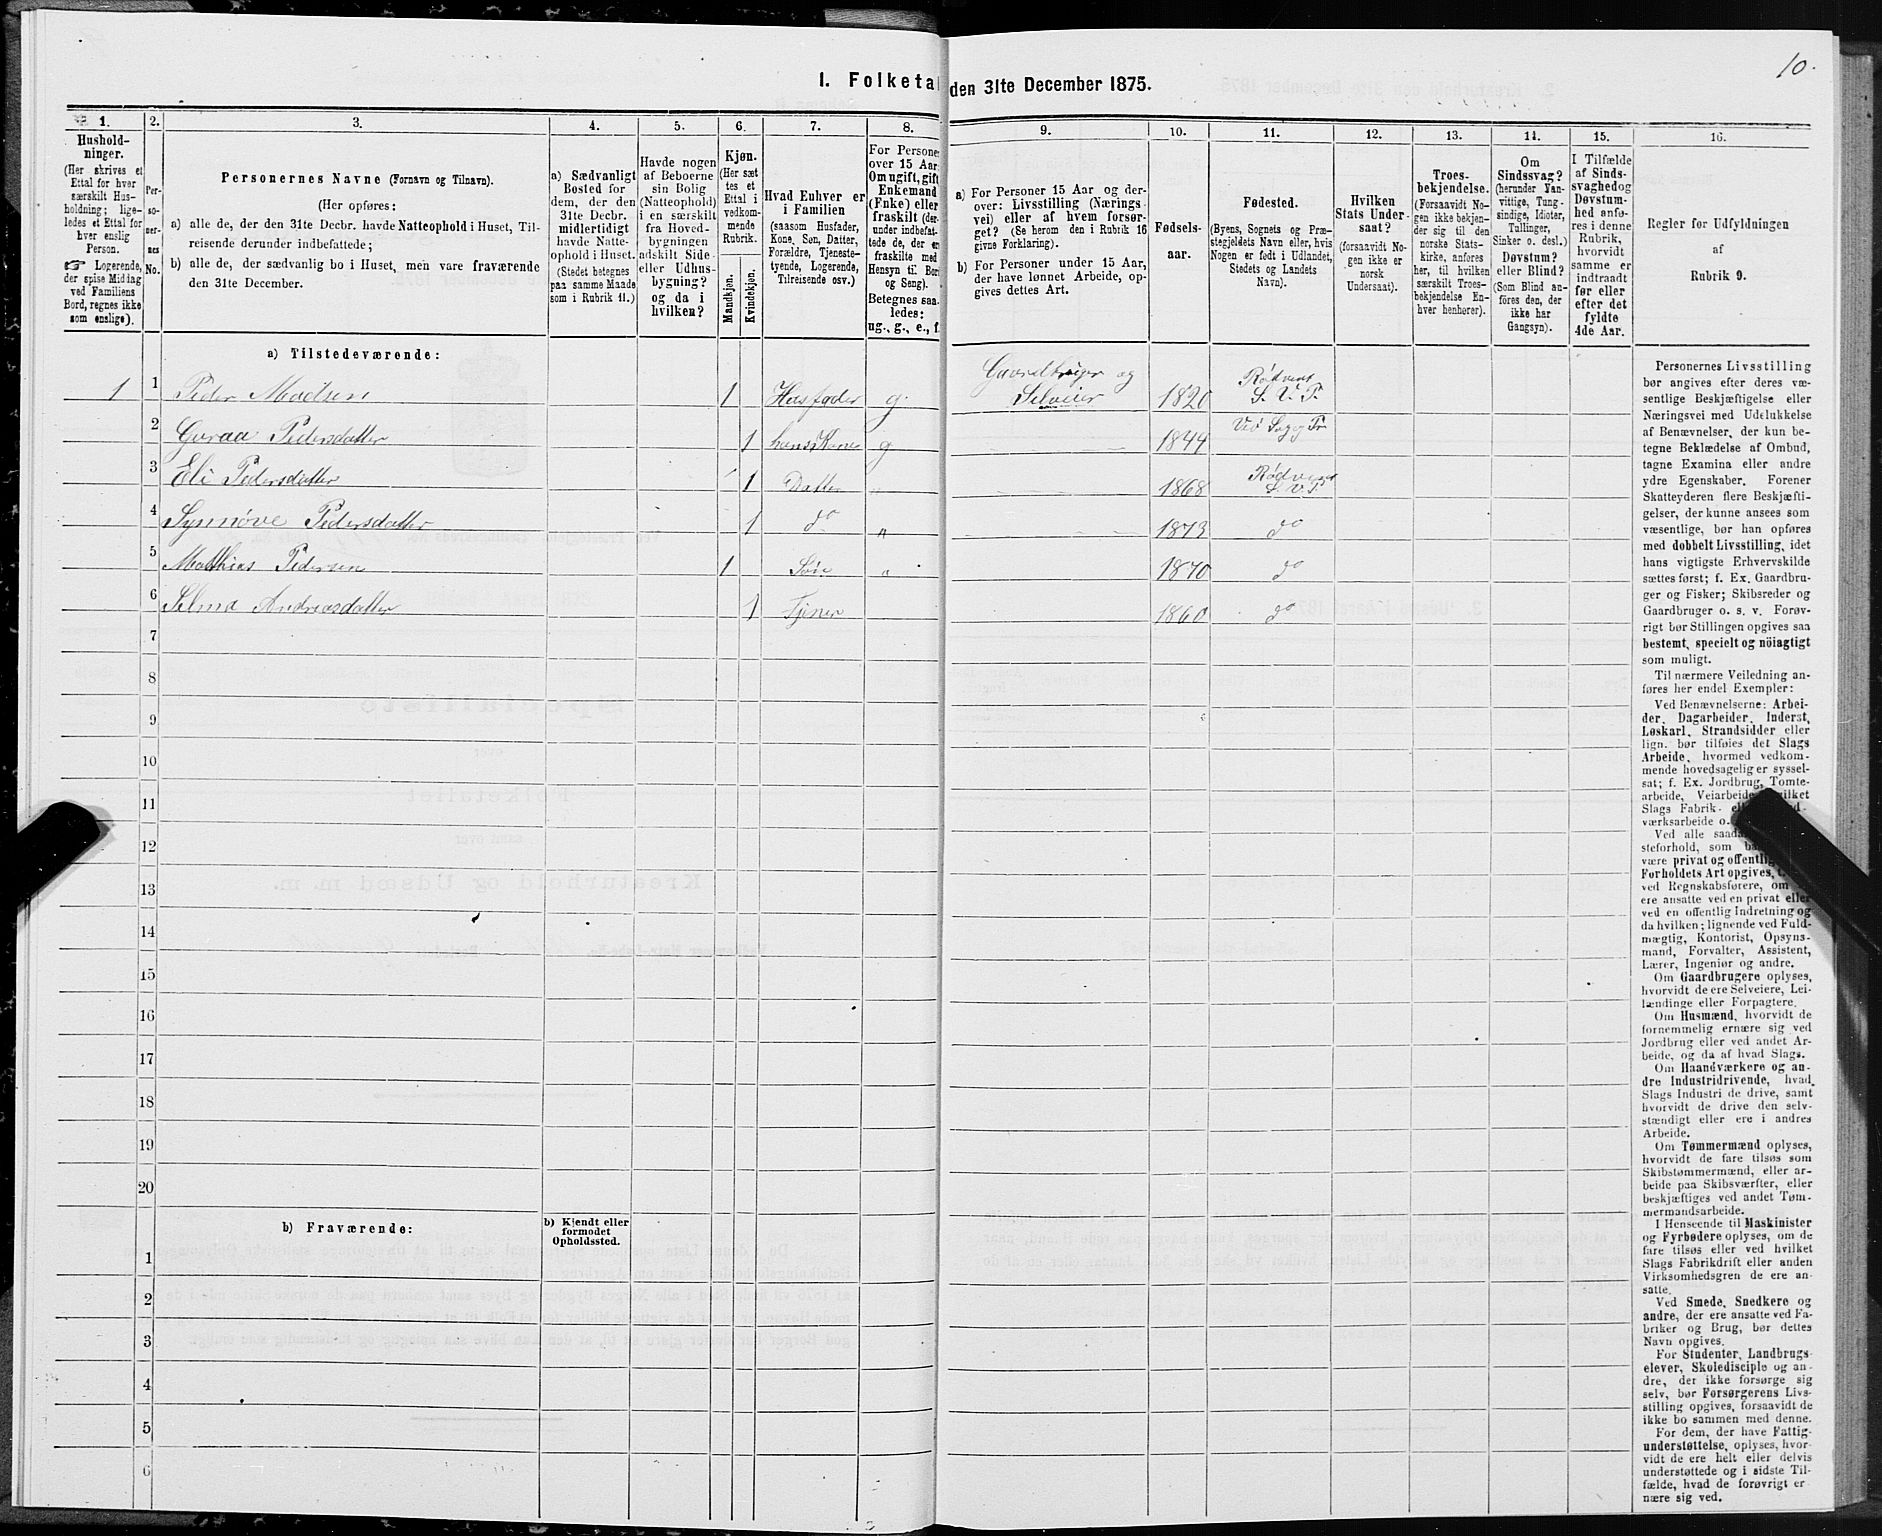 10.
1. Folketal den 31te December 1875.
1. 2. 3. 4. 5. 6. 7. 8. 9. 10. 11. 12. 13. 14. 15. 16.
Hushold-
ninger.
(Her skrives et
Ettal for hver
særskilt Hus-
holdning; lige-
ledes et Ettal for
hver enslig
Person.
☞ Logerende,
der spise Middag
ved Familiens
Bord, regnes ikke
som enslige).
Per-
so-
ner-
nes
No.
Personernes Navne (Fornavn og Tilnavn).
(Her opføres:
a) alle de, der den 31te Decbr. havde Natteophold i Huset, Til-
reisende derunder indbefattede;
b) alle de, der sædvanlig bo i Huset, men vare fraværende
den 31te December.
a) Sædvanligt
Bosted for
dem, der den
31te Decbr.
midlertidigt
havde Natte-
ophold i Huset.
(Stedet betegnes
paa samme Maade
som i Rubrik 11.)
Havde nogen
af Beboerne
sin Bolig
(Natteophold)
i en særskilt
fra Hoved-
bygningen
adskilt Side-
eller Udhus-
bygning?
og da i
hvilken?
Kjøn.
(Her sæt-
tes et
Ettal i
vedkom-
mende
Rubrik.
Mandkjøn.
Kvindekjøn.
Hvad Enhver er
i Familien
(saasom Husfader,
Kone, Søn, Datter,
Forældre, Tjeneste-
tyende, Logerende,
Tilreisende osv.)
For Persone
over 15 Aar
Om ugift, gift
Enkemand
(Enke) eller
fraskilt (der-
under indbefat-
tede de, der er
fraskilte med
Hensyn til Bor
og Seng).
Betegnes saa-
ledes:
ug., g., e., f.
a) For Personer 15 Aar og der-
over: Livsstilling (Nærings-
vei) eller af hvem forsør-
get? (Se herom den i Rubrik 16
givne Forklaring).
b) For Personer under 15 Aar,
der have lønnet Arbeide, op-
gives dettes Art.
Fødsels-
aar.
Fødested.
(Byens, Sognets og Præ-
stegjeldets Navn eller, hvis
Nogen er født i Udlandet,
Stedets og Landets
Navn).
Hvilken
Stats Under-
saat?
(forsaavidt No-
gen ikke er
norsk
Undersaat).
Troes-
bekjendelse.
(Forsaavidt No-
gen ikke bekjen-
der sig til den
norske Stats-
kirke, anføres
her, til hvilken
særskilt Troes-
bekjendelse En-
hver henhører).
Om
Sindssvag?
(herunder Van-
vittige, Tung-
sindige, Idioter,
Tullinger,
Sinker o. desl.)
Døvstum?
eller Blind?
(Som Blind an-
føres den, der
ikke har
Gangsyn).
I Tilfælde
af Sinds-
svaghed og
Døvstum-
hed anfø-
res i denne
Rubrik,
hvorvidt
samme er
indtraadt
før eller
efter det
fyldte
4de Aar.
Regler for Udfyldningen
af
Rubrik 9.
a) Tilstedeværende:
1 1 Peder Madsen 1 Husfader g. Gaardbruger og Selveier 1820 Rødven S. V. P.
2 Guraa Pedersdatter 1 hans Kone g 1844
3 Eli Pedersdatter 1 Datter " 1868 Rødven S. V. P.
4 Synnøve Pedersdatter 1 do " 1873 do
5 Matthias Pedersen 1 Søn " 1870 do
6 Selma Andreasdatter 1 Tjener 1860 do
7
8
9
10
11
12
13
14
15
16
17
18
19
20
b) Fraværende:
b) Kjendt eller
formodet
Opholdssted.
1
2
3
4
5
6
Personernes Livsstilling
bør angives efter deres væ-
sentlige Beskjæftigelse eller
Næringsvei med Udelukkelse
af Benævnelser, der kun be-
tegne Beklædelse af Ombud,
tagne Examina eller andre
ydre Egenskaber. Forener
Skatteyderen flere Beskjæfti-
gelser, der kunne ansees som
væsentlige, bør han opføres
med dobbelt Livsstilling, idet
hans vigtigste Erhvervskilde
sættes først; f. Ex. Gaardbru-
ger og Fisker; Skibsreder og
Gaardbruger o. s. v. Forøv-
rigt bør Stillingen opgives saa
bestemt, specielt og nöiagtigt
som muligt.
Til nærmere Veiledning an-
føres her endel Exempler:
Ved Benævnelserne: Arbei-
der, Dagarbeider, Inderst,
Løskarl, Strandsidder eller
lign. bør tilføies det Slags
Arbeide, hvormed vedkom-
mende hovedsagelig er syssel-
sat; f. Ex. Jordbrug, Tomte-
arbeide, Veiarbeide, hvilket
Slags Fabrik-
værksarbeide o.
Ved alle saada
steforhold, som
være privat og offentlig
Forholdets Art opgives,
ved Regnskabsførere, om
ere ansatte ved en privat eller
ved en offentlig Indretning og
da hvilken; lignende ved Fuld-
mægtig, Kontorist, Opsyns-
mand, Forvalter, Assistent,
Lærer, Ingeniør og andre.
Om Gaardbrugere oplyses,
hvorvidt de ere Selveiere, Lei-
lændinge eller Forpagtere.
Om Husmænd, hvorvidt de
fornemmelig ernære sig ved
Jordbrug eller ved andet Ar-
beide, og da af hvad Slags.
Om Haandværkere og an-
dre Industridrivende, hvad
Slags Industri de drive, samt
hvorvidt de drive den selv-
stændigt eller ere i andres
Arbeide.
Om Tømmermænd oplyses,
hvorvidt de fare tilsøs som
Skibstømmermænd, eller ar-
beide paa Skibsværfter, eller
beskjæftiges ved andet Tøm-
mermandsarbeide.
I Henseende til Maskinister
og Fyrbødere oplyses, om de
fare tilsøs eller ved hvilket
Slags Fabrikdrift eller anden
Virksomhedsgren de ere an-
satte.
Ved Smede, Snedkere og
andre, der ere ansatte ved Fa-
briker og Brug, bør dettes
Navn opgives.
For Studenter, Landbrugs-
elever, Skoledisciple og an-
dre, der ikke forsørge sig
selv, bør Forsørgerens Livs-
stilling opgives, forsaavidt de
ikke bo sammen med denne.
For dem, der have Fattig-
understøttelse, oplyses, hvor-
vidt de ere helt eller delvis
understøttede og i sidste Til-
fælde, hvad de forøvrigt er-
nære sig ved.